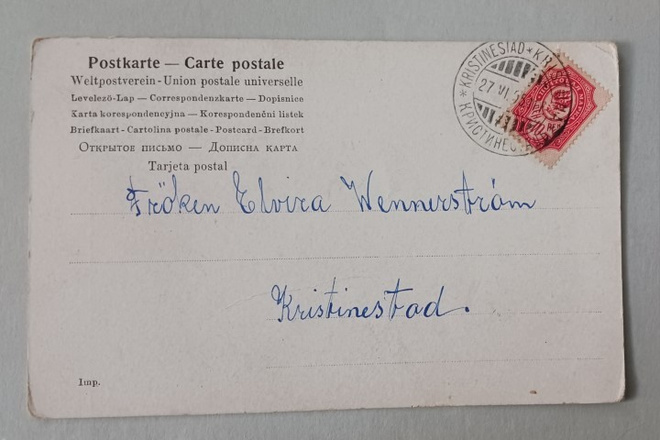 Postkarte — Carte postale
Weltpostverein - Union postale universelle
Levelező-Lap — Correspondenzkarte — Dopisnice
Karta korespondencyjna — Korespondenční lístek
Briefkaart - Cartolina postale - Postcard - Brefkort
Открытое письмо — Дописна карта
Tarjeta postal
KRISTINESTAD
27 VI
Fröken Elvira Wennerström
Kristinestad.
Imp.